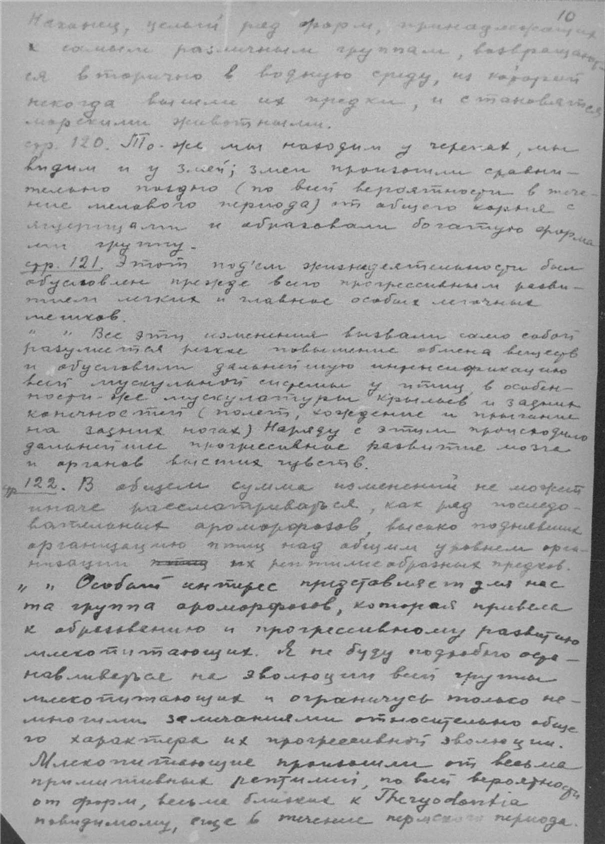 10
Наконец, целый ряд форм, принадлежащих
к самым различным группам, возвращают-
ся вторично в водную среду, из которой
некогда вышли их предки, и становятся
морскими животными.
стр. 120. То-же мы находим у черепах, мы
видим и у змей; змеи произошли сравни-
тельно поздно (по всей вероятности в тече-
ние мелового периода) от общего корня с
ящерицами и образовали богатую форма-
ми группу.
стр. 121. Этот под'ем жизнедеятельности был
обусловлен прежде всего прогрессивным разви-
тием легких и главное особых легочных
мешков.
" " Все эти изменения вызвали само собой
разумеется резкое повышение обмена веществ
и обусловили дальнейшую интенсификацию
всей мускульной системы у птиц в особен-
ности-же мускулатуры крыльев и задних
конечностей (полет, хождение и прыгание
на задних ногах) Наряду с этим происходило
дальнейшее прогрессивное развитие мозга
и органов высших чувств.
стр 122. В общем сумма изменений не может
иначе рассматриваться, как ряд последо-
вательных ароморфозов, высоко поднявших
организацию птиц над общим уровнем орга-
низации их рептилеобразных предков.
" " Особый интерес представляет для нас
та группа ароморфозов, которая привела
к образованию и прогрессивному развитию
млекопитающих. Я не буду подробно оста-
навливаться на эволюции всей группы
млекопитающих и ограничусь только не-
многими замечаниями относительно обще-
го характера их прогрессивной эволюции.
Млекопитающие произошли от весьма
примитивных рептилий, по всей вероятности
от форм, весьма близких к Theryodontia
повидимому, еще в течение пермского периода.